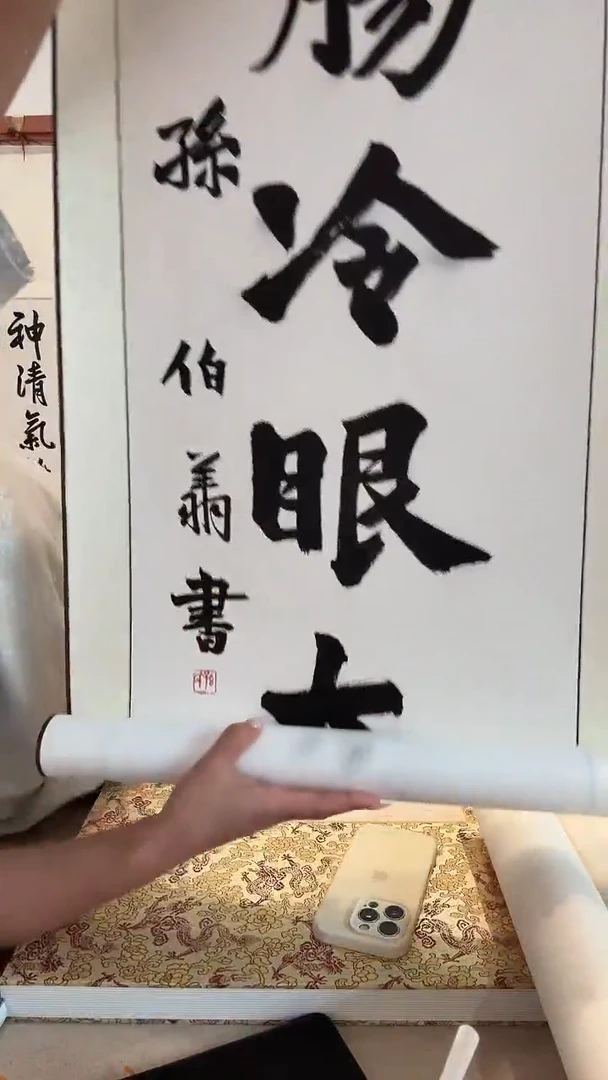 冷眼
孫伯翔書
神清氣